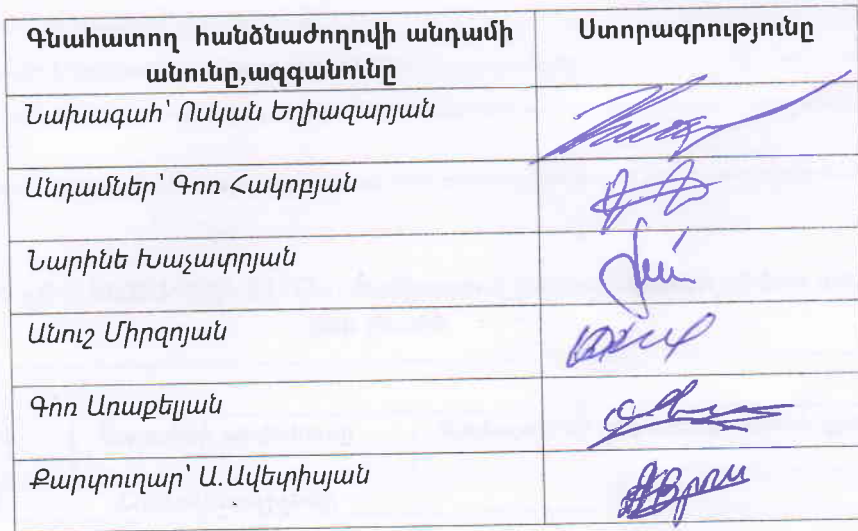 Գնահատող հանձնաժողովի անդամի Ստորագրությունը
անունը,ազգանունը
Նախագահ՝ Ոսկան Եղիազարյան
Անդամներ՝ Գոռ Հակոբյան
Նարինե Խաչատրյան
Անուշ Միրզոյան
Գոռ Առաքելյան
Քարտուղար՝ Ա.Ավետիսյան